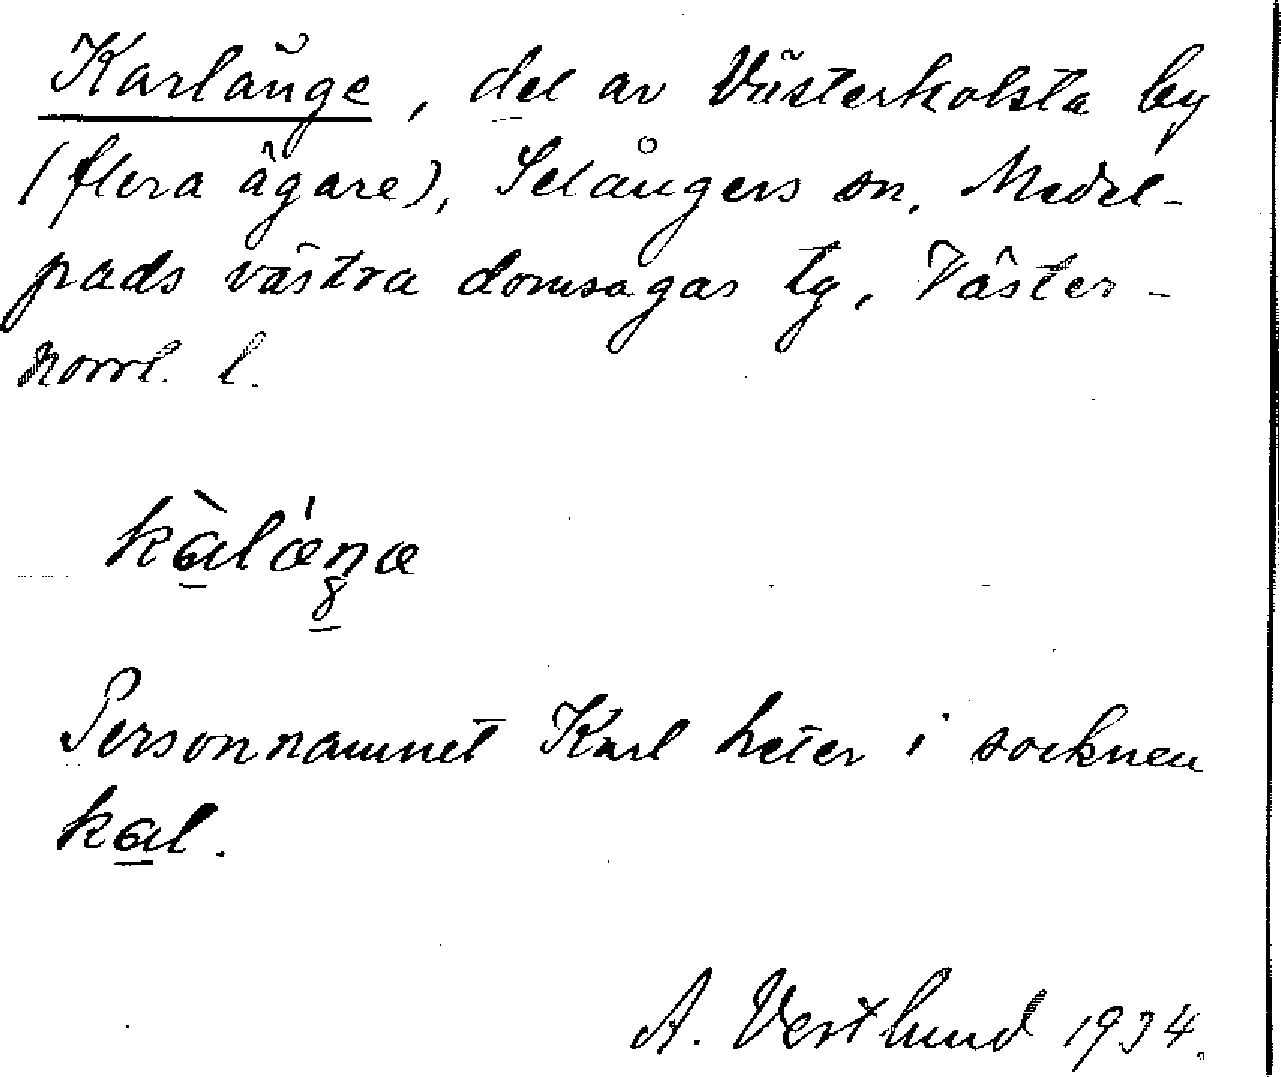 Karlänge, del av Västerkolsta by
(flera ägare), Selångers sn, Medel-
pads västra domsagas tg, Väster-
norrl. l.
kàlǽŋæ
Personnamnet Karl heter i socknen
kal.
A. Vestlund 1934.